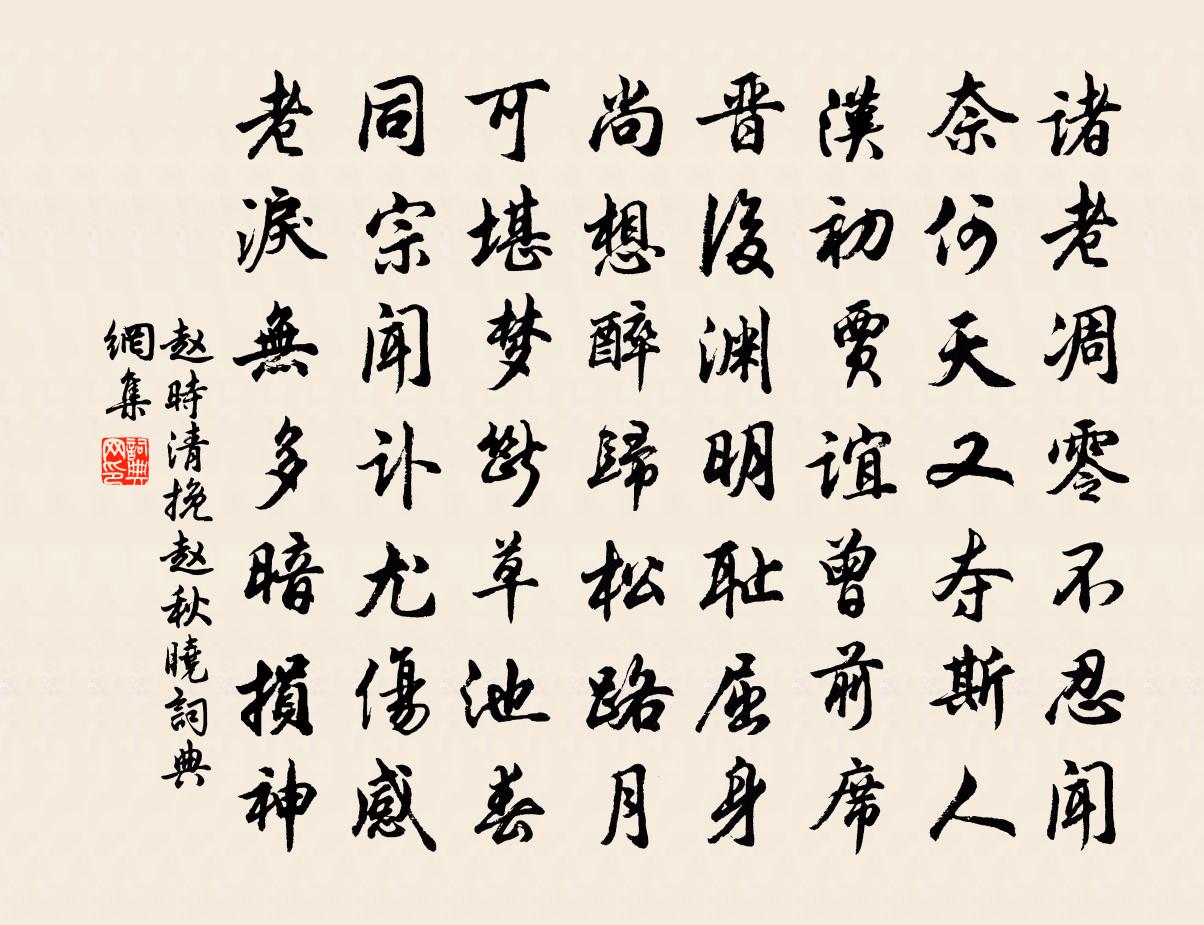 诸老凋零不忍闻
奈何天又夺斯人
漢初贾谊曾前席
晋後渊明耻屈身
尚想醉歸松路月
可堪梦断草池春
同宗闻讣尤傷感
老淚無多暗損神
赵時清挽赵秋曉詞典
網集
詞典
网印